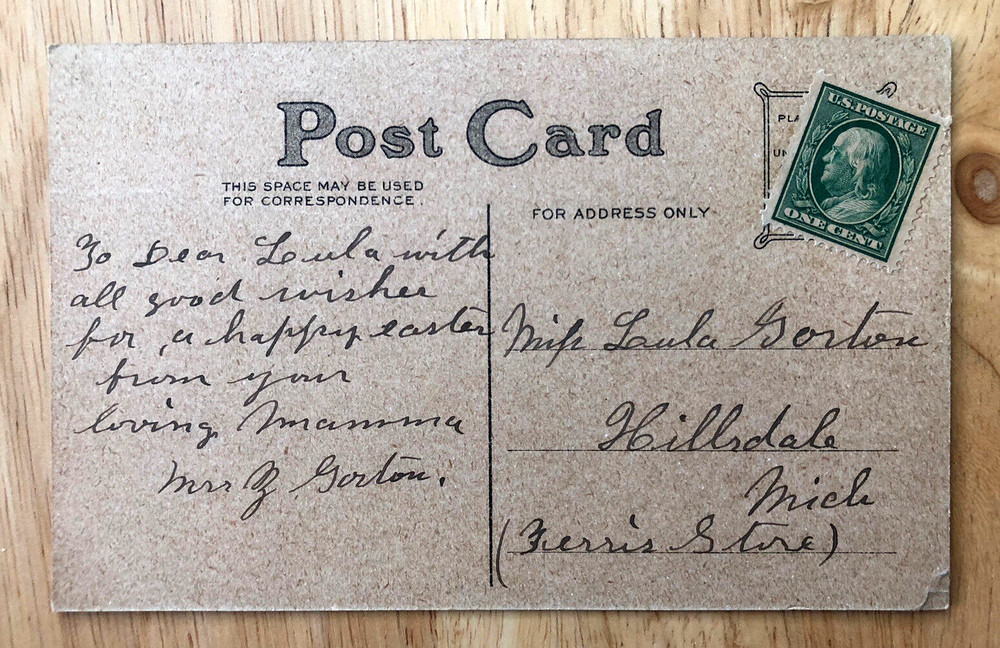 Post Card
THIS SPACE MAY BE USED
FOR CORRESPONDENCE.
FOR ADDRESS ONLY
PLA
UN
U.S. POSTAGE
ONE CENT
To Dear Lula with
all good wishes
for a happy easter
from your
loving Mamma
Mrs Z Gorton.
Miss Lula Gorton
Hillsdale
Mich
(Ferris Store)